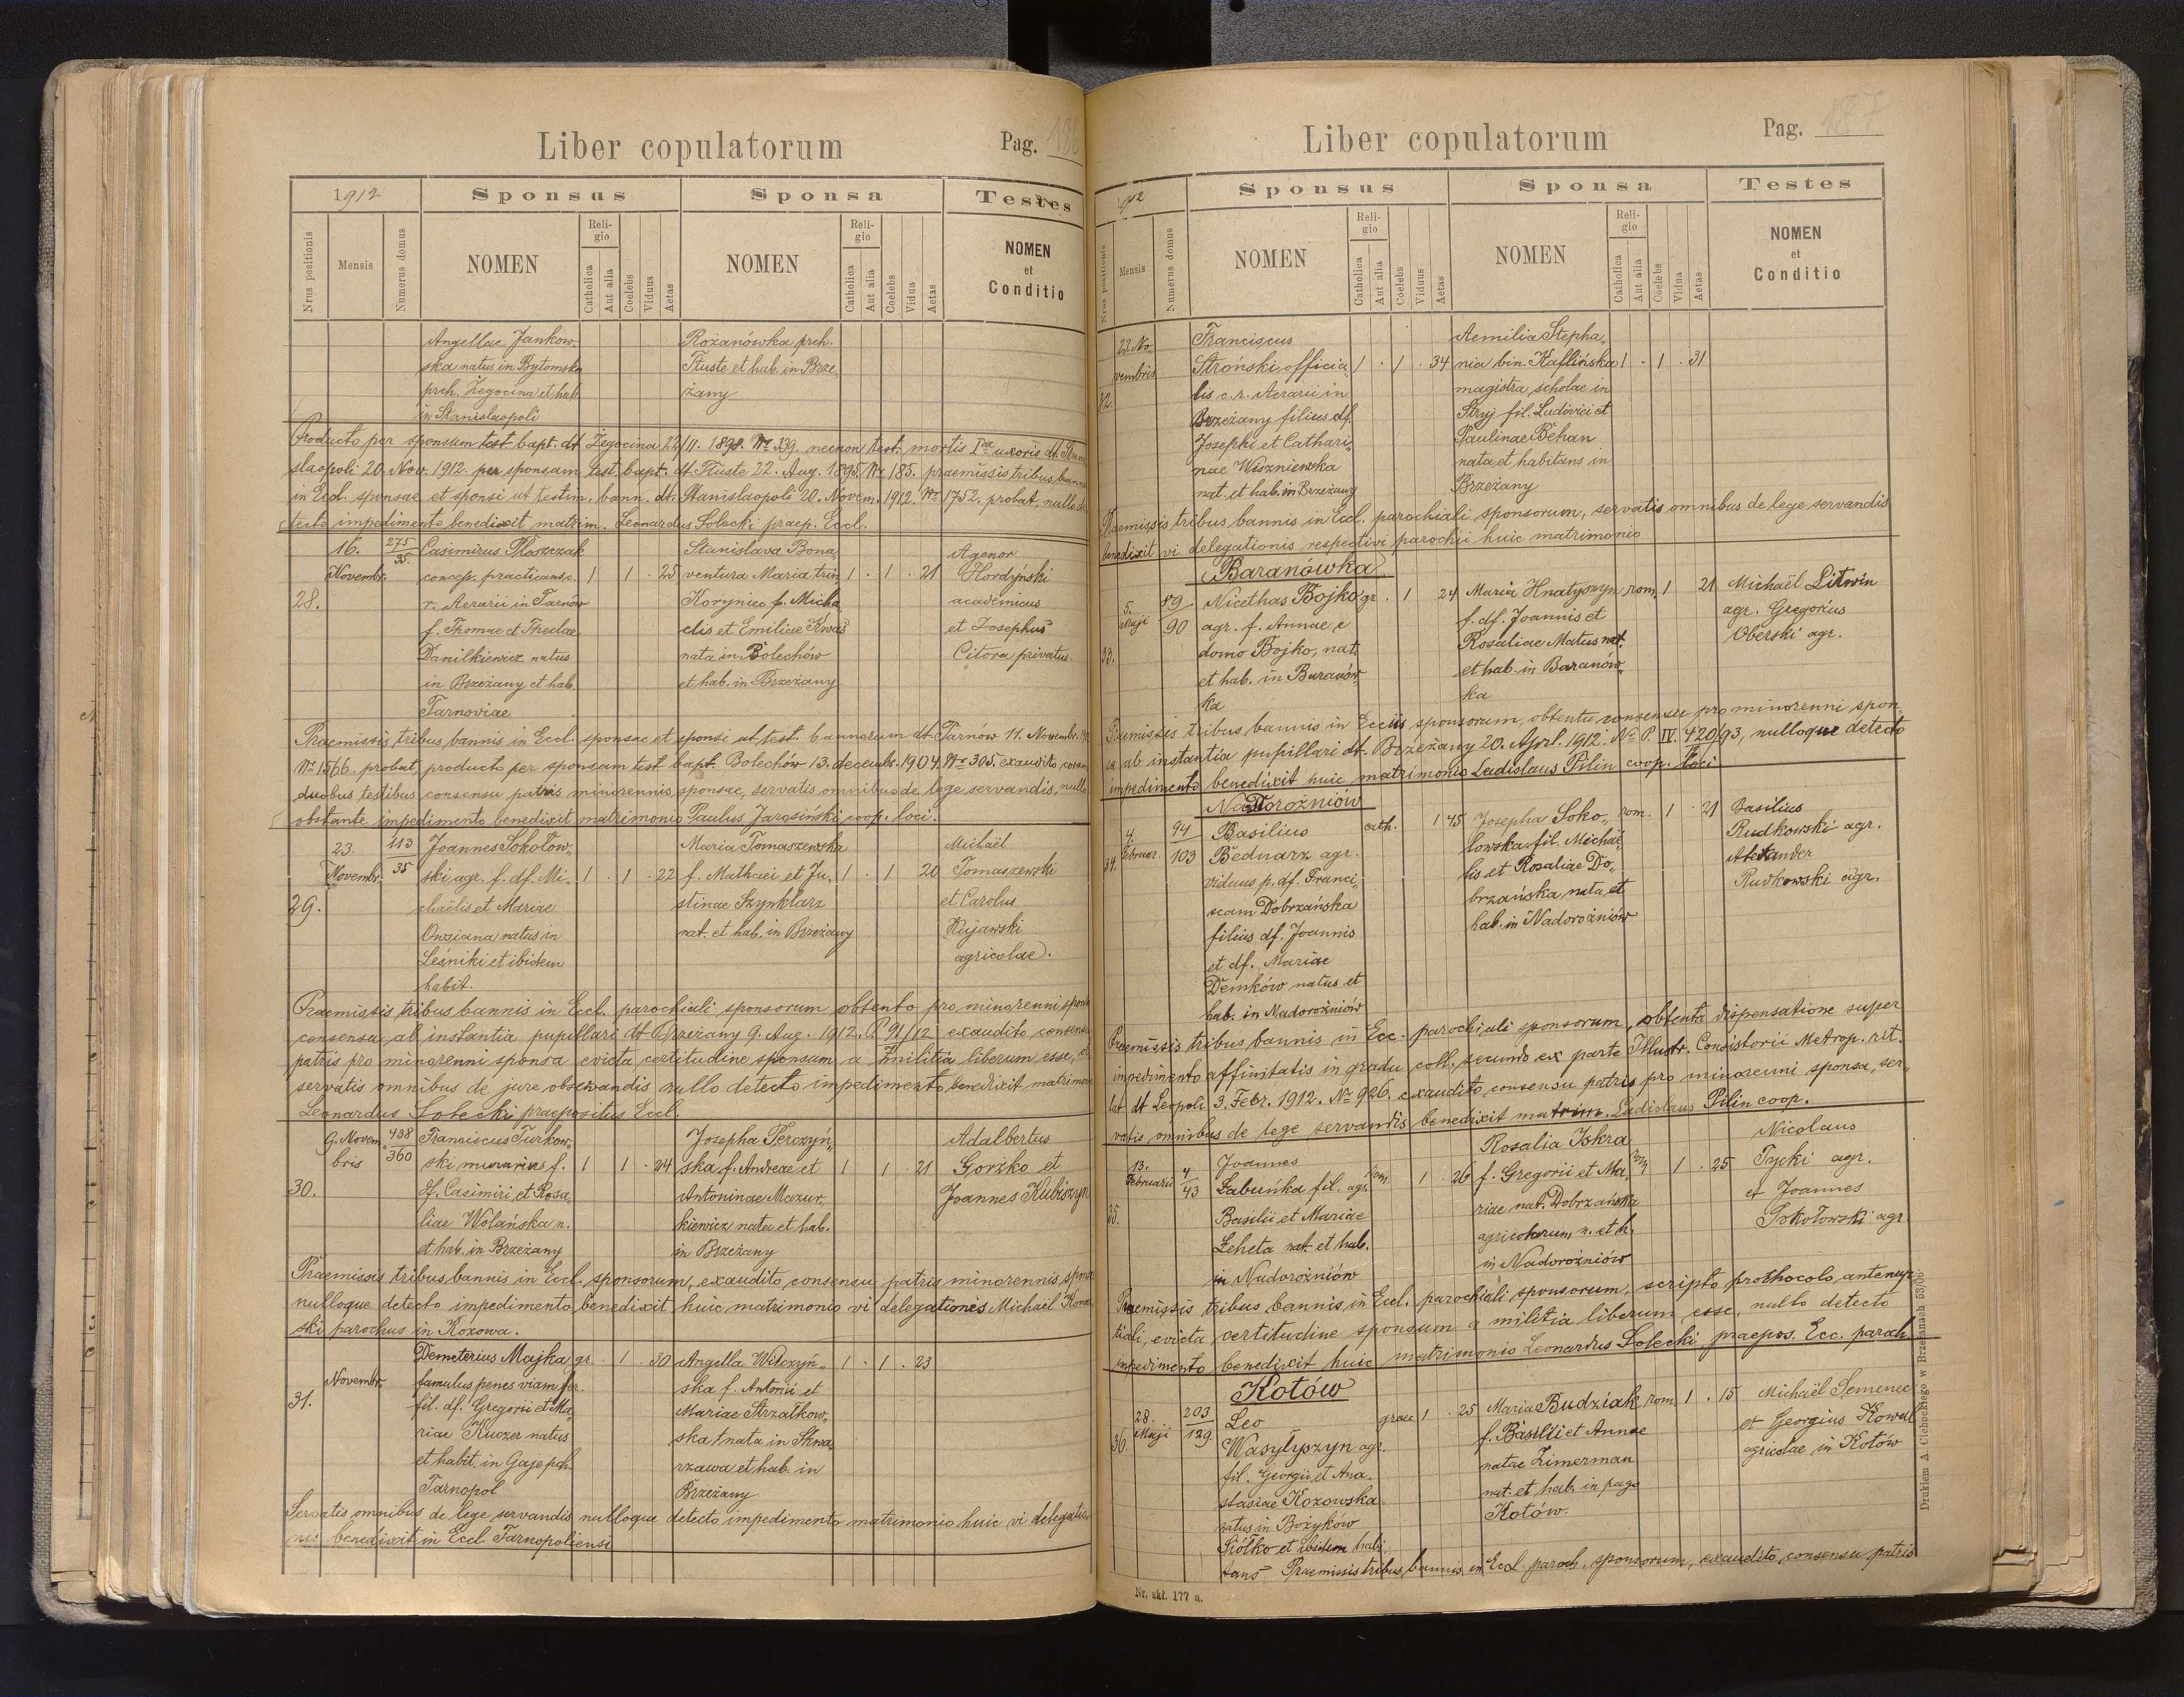 Liber copulatorum
Pag. 186
1912
Sponsus
Sponsa
Testes
Nrus positionis
Mensis
Numerus domus
NOMEN
Religio
Catholica
Aut alia
Coelebs
Viduus
Aetas
NOMEN
Religio
Catholica
Aut alia
Coelebs
Vidua
Aetas
NOMEN
et
Conditio
Angellae Jankow„
ska natus in Bytomsko
prch. Żegocina et hab.
in Stanislaopoli
Rożanówka prch.
Tłuste et hab. in Brze„
żany
Producto per sponsum test. bapt. dt. Żegocina 22/11. 1898. Nr 339. necnon test. mortis Iae uxoris dt. Stani
slaopoli 20. Nov. 1912. per sponsam test. bapt. dt. Tłuste 22. Aug. 1895. Nr 185. praemissis tribus bannis
in Eccl. sponsae et sponsi ut testim. bann. dt. Stanislaopoli 20. Novem. 1912. Nr 1752. probat, nullo de
tecto impedimento benedixit matrim. Leonardus Solecki praep. Eccl.
16.
Novembr.
28.
275
35
Casimirus Płoszczak
concep. practicans c. 1 1 . 25
r. Aerarii in Tarnów
f. Thomae et Theclae
Danilkiewicz natus
in Brzeżany et hab.
Tarnoviae
Stanislava Bona„
ventura Maria trin. 1 . 1 . 21
Koryniec f. Micha„
elis et Emiliae Kwaś
nata in Bolechów
et hab. in Brzeżany
Agenor
Hordyński
academicus
et Josephus
Citora privatus.
Praemissis tribus bannis in Eccl. sponsae et sponsi ut test. bannorum dt. Tarnów 11. Novembr. 1912
Nr 1566. probat, producto per sponsam test. bapt. Bolechów 13. decembr. 1904. Nr 305. exaudito coram
duobus testibus consensu patris minorennis sponsae, servatis omnibus de lege servandis, nullo
obstante impedimento benedixit matrimonio Paulus Jarosiński coop. loci.
23.
Novembr.
29.
113
35
Joannes Sokołow„
ski agr. f. df. Mi„ 1 . 1 . 22
chaëlis et Mariae
Owsiana natus in
Leśniki et ibidem
habit.
Maria Tomaszewska
f. Mathaei et Ju„ 1 . 1 20
stinae Szynklarz
nat. et hab. in Brzeżany
Michaël
Tomaszewski
et Carolus
Kujawski
agricolae.
Praemissis tribus bannis in Eccl. parochiali sponsorum obtento pro minorenni sponso
consensu ab instantia pupillari dt. Brzeżany 9. Aug. 1912. P. 91/12 exaudito consensu
patris pro minorenni sponsa evicta certitudine sponsum a militia liberum esse,
servatis omnibus de jure observandis nullo detecto impedimento benedixit matrimon
Leonardus Solecki praepositus Eccl.
9. Novem„
bris
30.
438
360
Franciscus Turkow„
ski murarius f. 1 1 . 24
df. Casimiri et Rosa
liae Wolańska n.
et hab. in Brzeżany
Josepha Perczyń„
ska f. Andreae et 1 1 . 21
Antoninae Mazur„
kiewicz nata et hab.
in Brzeżany
Adalbertus
Gorżko et
Joannes Kubiszyn
Praemissis tribus bannis in Eccl. sponsorum, exaudito consensu patris minorennis spons
nulloque detecto impedimento benedixit huic matrimonio vi delegationis Michaël
ski parochus in Kozowa.
Novembr.
31.
Demeterius Majka gr. . 1 . 30
famulus penes viam fer.
fil. df. Gregorii et Ma„
riae Kuczer natus
et habit. in Gaje pch.
Tarnopol
Angella Wilczyń„ 1 . 1 . 23
ska f. Antonii et
Mariae Strzałkow„
ska nata in Skwa„
rzawa et hab. in
Brzeżany
Servatis omnibus de lege servandis nulloque detecto impedimento matrimonio huic vi delegatio„
nis benedixit in Eccl. Tarnopoliensi
Liber copulatorum
Pag. 187
1912
Sponsus
Sponsa
Testes
Nrus positionis
Mensis
Numerus domus
NOMEN
Religio
Catholica
Aut alia
Coelebs
Viduus
Aetas
NOMEN
Religio
Catholica
Aut alia
Coelebs
Vidua
Aetas
NOMEN
et
Conditio
22. No„
vembris
32.
Franciscus
Stroński officia„ 1 . 1 . 34
lis c. r. Aerarii in
Brzeżany filius df.
Josephi et Cathari„
nae Wiszniewska
nat. et hab. in Brzeżany
Aemilia Stepha„
nia bin. Kaflińska 1 . 1 . 31
magistra scholae in
Stryj fil. Ludovici et
Paulinae Behan
nata et habitans in
Brzeżany
Praemissis tribus bannis in Eccl. parochiali sponsorum, servatis omnibus de lege servandis
benedixit vi delegationis respectivi parochi huic matrimonio
Baranówka
5.
Maji
33.
89
90
Nicethas Bojko gr. . 1 24
agr. f. Annae e
domo Bojko, nat.
et hab. in Baranów„
ka
Maria Hnatyszyn rom. 1 21
f. df. Joannis et
Rosaliae Matus nat.
et hab. in Baranów„
ka
Michaël Litwin
agr. Gregorius
Oberski agr.
Praemissis tribus bannis in Ecciis sponsorum, obtentu consensu pro minorenni spon„
sa ab instantia pupillari dt. Brzeżany 20. April. 1912. No P. IV. 420/93, nulloque detecto
impedimento benedixit huic matrimonio Ladislaus Pilin coop. loci
Nadorożniów
4.
Februar.
34.
94
103
Basilius cath. 1 45
Bednarz agr.
viduus p. df. Franci„
scam Dobrzańska
filius df. Joannis
et df. Mariae
Demków natus et
hab. in Nadorożniów
Josepha Soko„ rom. 1 . 21
łowska fil. Michaë„
lis et Rosaliae Do„
brzańska nata et
hab. in Nadorożniów
Basilius
Rudkowski agr.
Alexander
Rudkowski agr.
Praemissis tribus bannis in Ecc. parochiali sponsorum, obtenta dispensatione super
impedimento affinitatis in gradu coll. secundo ex parte Illustr. Consistorii Metrop. rit.
lat. dt Leopoli 3. Febr. 1912. No 926. exaudito consensu patris pro minorenni sponsa, ser„
vatis omnibus de lege servandis benedixit matrim. Ladislaus Pilin coop.
13.
Februarii
35.
4
43
Joannes
Łabuńka fil. agr. rom. 1 . 26
Basilii et Mariae
Leheta nat. et hab.
in Nadorożniów
Rosalia Iskra
f. Gregorii et Ma„ rom 1 . 25
riae nat. Dobrzańska
agricolarum n. et h.
in Nadorożniów
Nicolaus
Tycki agr.
et Joannes
Sokołowski agr.
Praemissis tribus bannis in Eccl. parochiali sponsorum, scripto prothocolo antenup„
tiali, evicta certitudine sponsum a militia liberum esse, nullo detecto
impedimento benedixit huic matrimonio Leonardus Solecki praepos. Ecc. paroh.
Kotów
28.
Maji
36.
203
129
Leo graec. 1 . 25
Wasyłyszyn agr.
fil. Georgii et Ana„
stasiae Kozowska
natus in Bożyków
Siółko et ibidem habi„
tans
Maria Budziak rom. 1 . 15
f. Basilii et Annae
natae Zimerman
nat. et hab. in pago
Kotów.
Michaël Semenec
et Georgius Kowal
agricolae in Kotów
Praemissis tribus bannis in Eccl. paroch. sponsorum, exaudito consensu patris
Nr. skł. 177 a.
Drukiem A. Ciebockiego w Brzeżanach 53/06